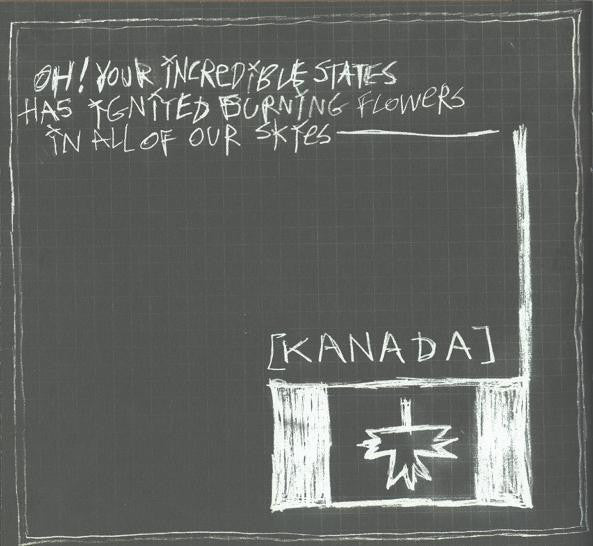 OH! YOUR INCREDIBLE STATES
HAS IGNITED BURNING FLOWERS
IN ALL OF OUR SKIES
[KANADA]